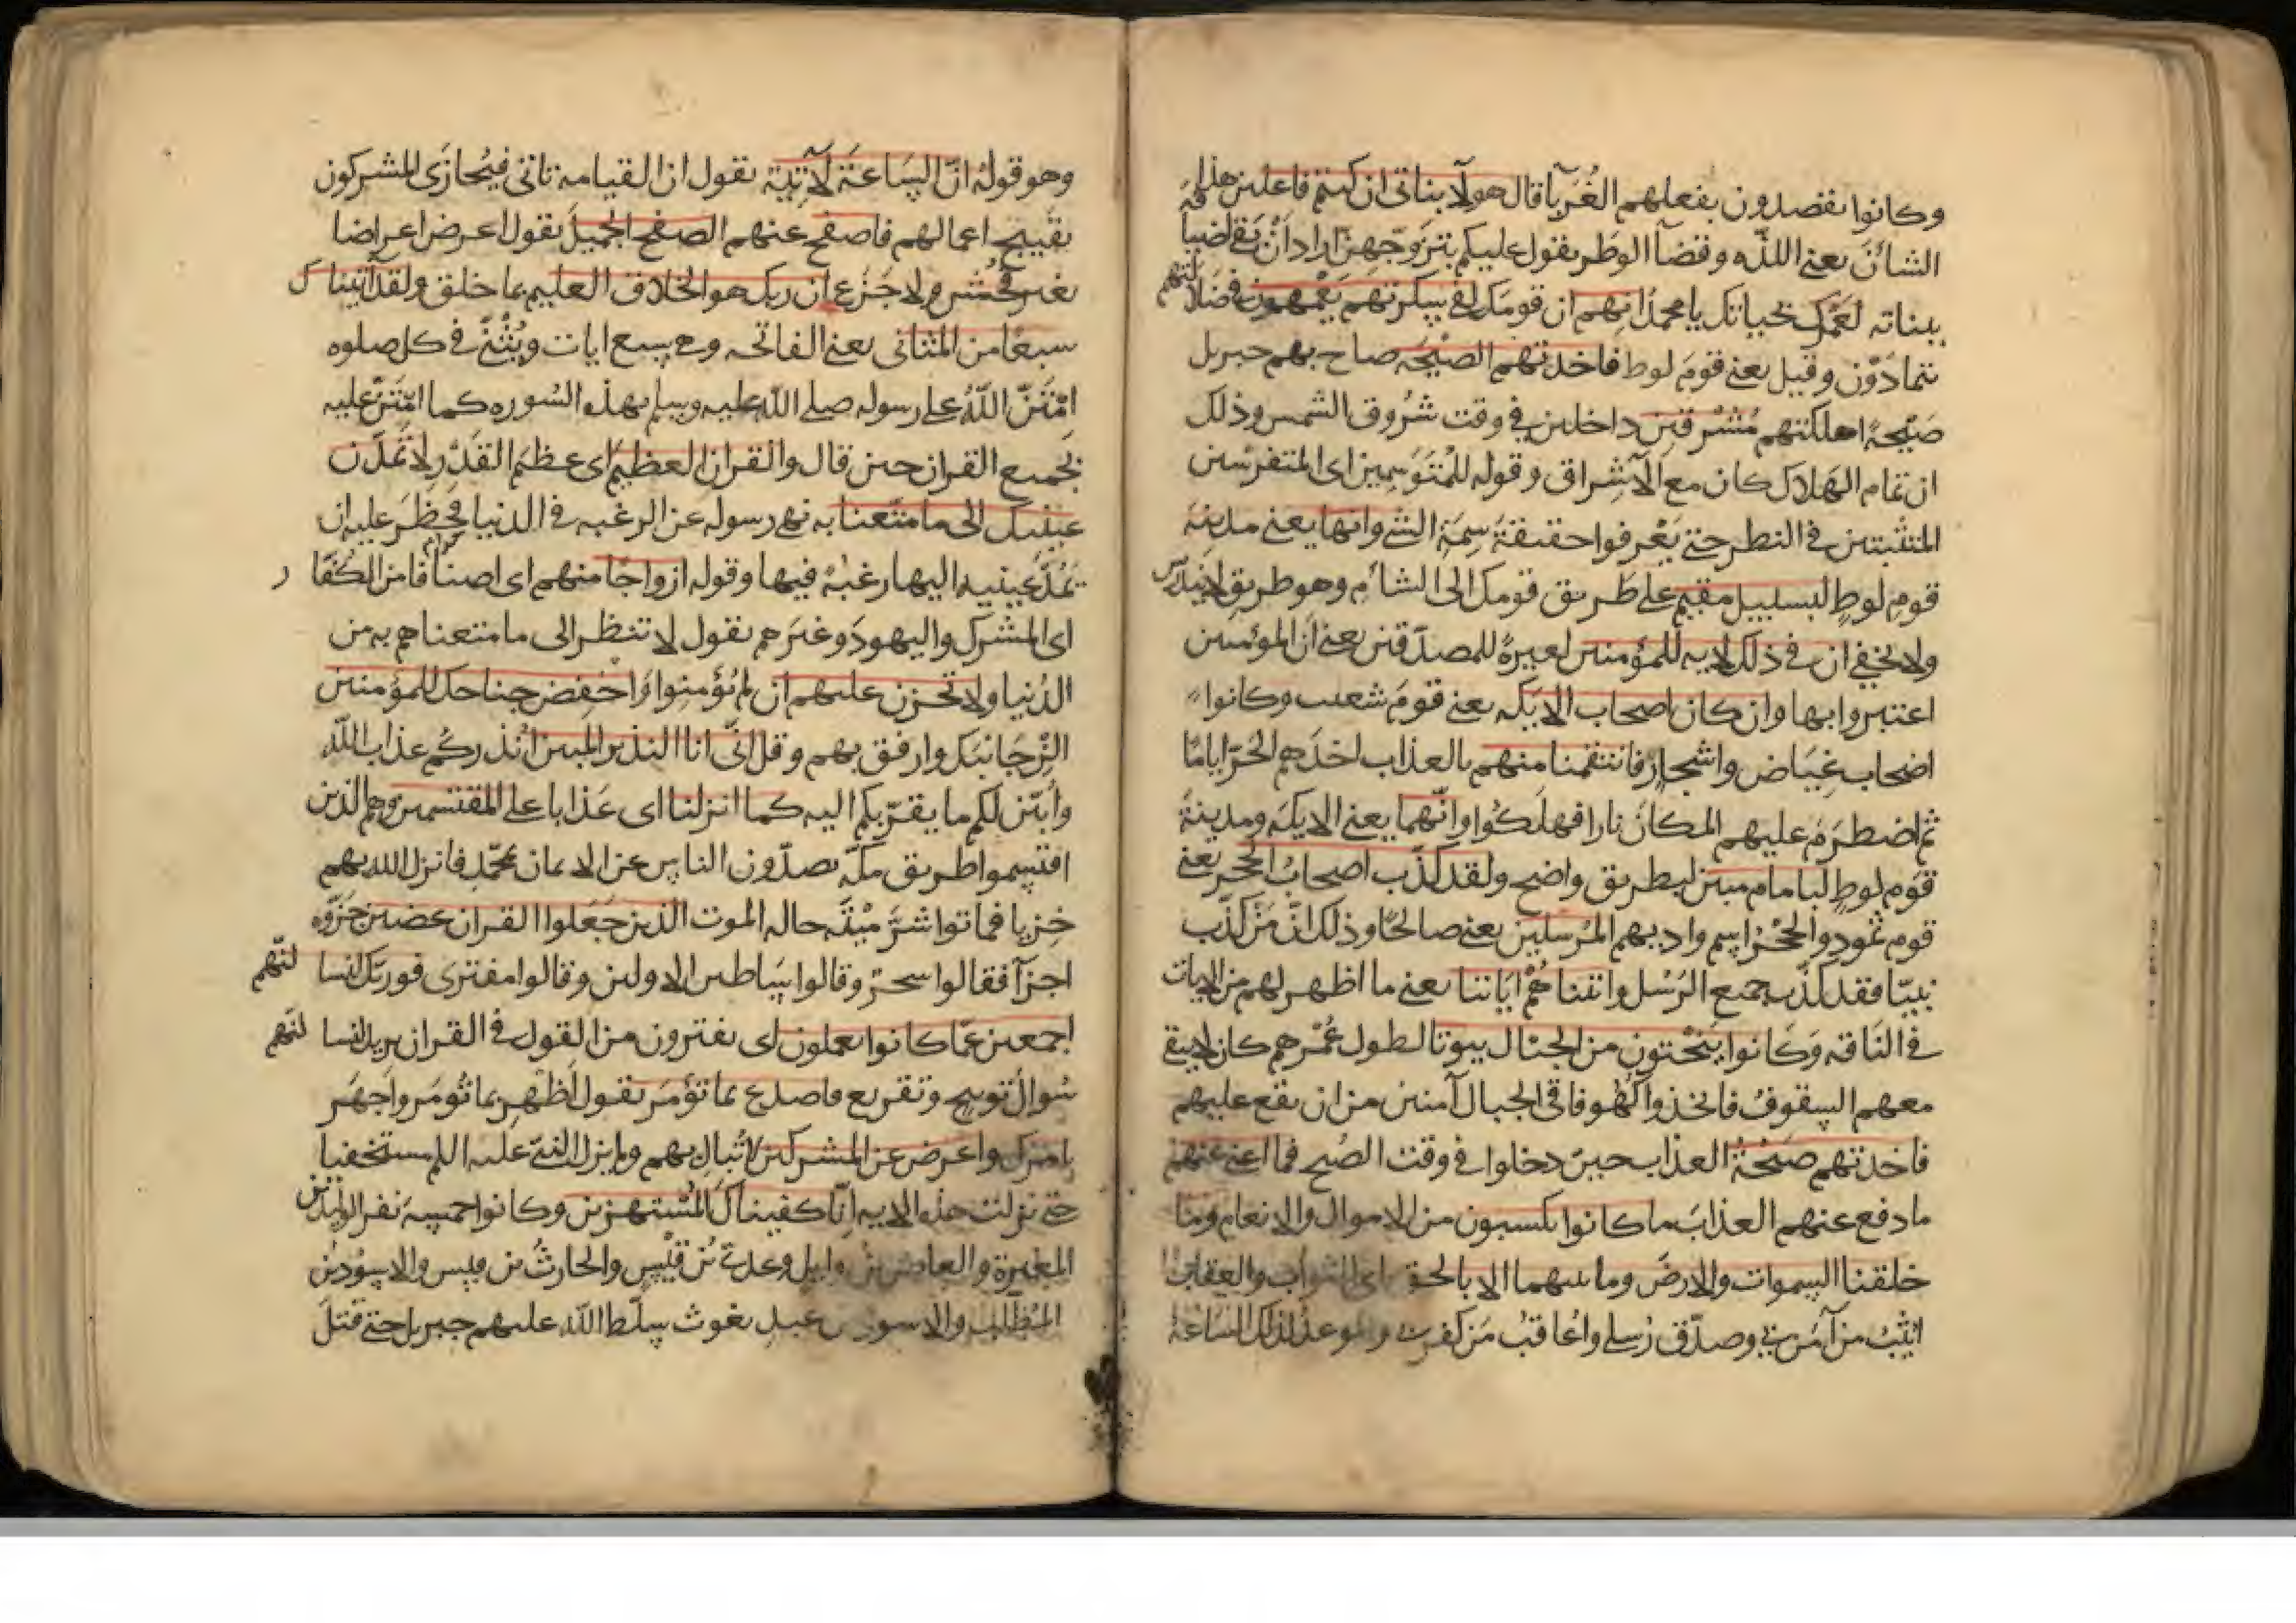 وكانوا يقصدون بفعلهم الغُرَبآ قال هولآ بناتى ان كنتم فاعلين هذا
الشانَ يعنى اللذّه وقضآ الوطر يقول عليكم بتزوّجهنّ اراد ان يقى اضيافَه
ببناته لَعَمْرك بحياتك يا محمدُ انهم ان قومك لفى سكرتهم يَعْمهون فى ضلالتهم
يتمادَوْن وقيل يعنى قومَ لوط فاخذتهم الصَيْحَه صاح بهم جبريل
صَيْحةً اهلكتهم مُشْرقين داخلين فى وقت شُروق الشمس وذلك
ان تمام الهَلاك كان مع الاشراق وقوله للمُتَوَسِمين اى المتفرّسين
المتثبتين فى النظر حتى يَعْرفوا حقيقةَ سِمَة الشى وانها يعنى مدينةَ
قوم لوطٍ لبسبيل مقيم على طَريق قومك الى الشأم وهو طريق لا يندرس
ولا يخفى ان فى ذلك لايه للمؤمنين لعبرةً للمصدّقين يعنى انّ المؤمنين
اعتبروا بها وان كان اصحاب الايكه يعنى قومَ شعيب وكانوا
اصحاب غِيَاض واشجار فانتقمنا منهم بالعذاب اخذهم الحَرّ اياما
ثم اضطرَمَ عليهم المكانُ نارا فهلكُوا وانّهما يعنى الايكه ومدينةَ
قوم لوطٍ لبامام مبين لبطريق واضح ولقد كذّب اصحابُ الحجر يعنى
قوم ثمود والحِجْرُ اسم واديهم المُرسلين يعنى صالحًا وذلك انّ مَن كذّب
نبيّا فقد كذّب جميع الرُسُل واتيناهُمْ اياتنا يعنى ما اظهر لهم من الايات
فى النَاقه وَكانوا يَنْحتون من الجبال بيوتا لطول عُمْرهم كان لا يبقى
معهم السقوفُ فاتخذوا كُهُوفا فى الجبال آمنين من ان يقع عليهم
فاخذتهم صَيْحَةُ العذاب حين دخلوا فى وقت الصُبح فما اغنى عنهم
ما دفع عنهم العذابَ ما كانوا يكسبون من الاموال والانعام وما
خلقنا السموات والارضَ وما بينهما الا بالحق اى للثواب والعقاب
اثيبُ من آمن بى وصدّق رُسلى واعاقبُ مَن كفر بى والموعدُ لذلك الساعةُ
وهو قولهُ انّ السَاعَةَ لآتيَة يقول ان القيامه تاتى فيُجازَى المشركون
بقَبيح اعمالهم فاصفح عنهم الصفح الجميلَ يقول اعرض اعراضا
بغير فُحْش ولا جَزَع ان ربك هو الخلاق العليم بما خلق ولقد آتيناك
سبعًا من المثانى يعنى الفاتحه وهى سبع ايات ويُثْنَّى فى كل صلوه
امْتَنّ اللّهُ على رسوله صلى اللّه عليه وسلم بهذه السُوره كما امْتَنّ عليه
بجميع القران حين قال والقران العظيمَ اى عظيمَ القَدْر لا تَمُدّن
عينيك الى ما متّعنا به نهى رسوله عن الرغبه فى الدنيا فحظَرَ عليه ان
يَمُدّ عينيه اليها رغبةً فيها وقوله ازواجًا منهم اى اصنافا من الكُفّار
اى المشرك واليهود وغيرهم يقول لا تنظر الى ما متعناهم به من
الدُنيا ولا تحزن عليهم ان لم يُؤمنوا وَاخْفِض جناحك للمؤمنين
الِنْ جَانبَك وارفق بهم وقل انّى انا النذير المبين اُنْذركُم عذابَ اللّه
وابيّن لكم ما يقرّبكم اليه كما انزلنا اى عَذابا على المقتسمين وهم الذين
اقتسموا طريق مكّه يصدّون الناس عن الايمان بمحمّدٍ فانزل الله بهم
خِزيا فماتوا شرَّ مِيْتَه حاله الموت الذين جَعَلوا القران عضين جَزّوه
اجزآ فقالوا سحرٌ وقالوا اساطير الاولين وقالوا مفترى فوربّك لنسالنّهم
اجمعين عَمّا كانوا يعملون اى يفترون من القول فى القران يريد لنسالنّهم
سُوالَ توبيخ وتقريع فاصدع بما تؤمَر يقول اظهِر بما تُومَر واجهَر
بامرك واعرض عن المشركين لا تُبالِ بهم ولم يزل النبىّ عليه السلم مستخفيا
حتى نزلت هذه الايه اِنّا كفيناكَ المُسْتهزئين وكانوا خمسه نفر الوليدُ بن
المغيرة والعاص بنُ وايل وعدىّ بن قَيْس والحارثُ بن قيس والاسوَد بن
المُطّلب والاسود بن عبدِ يغوث سلّط اللّه عليهم جبريل حتى قتلَ